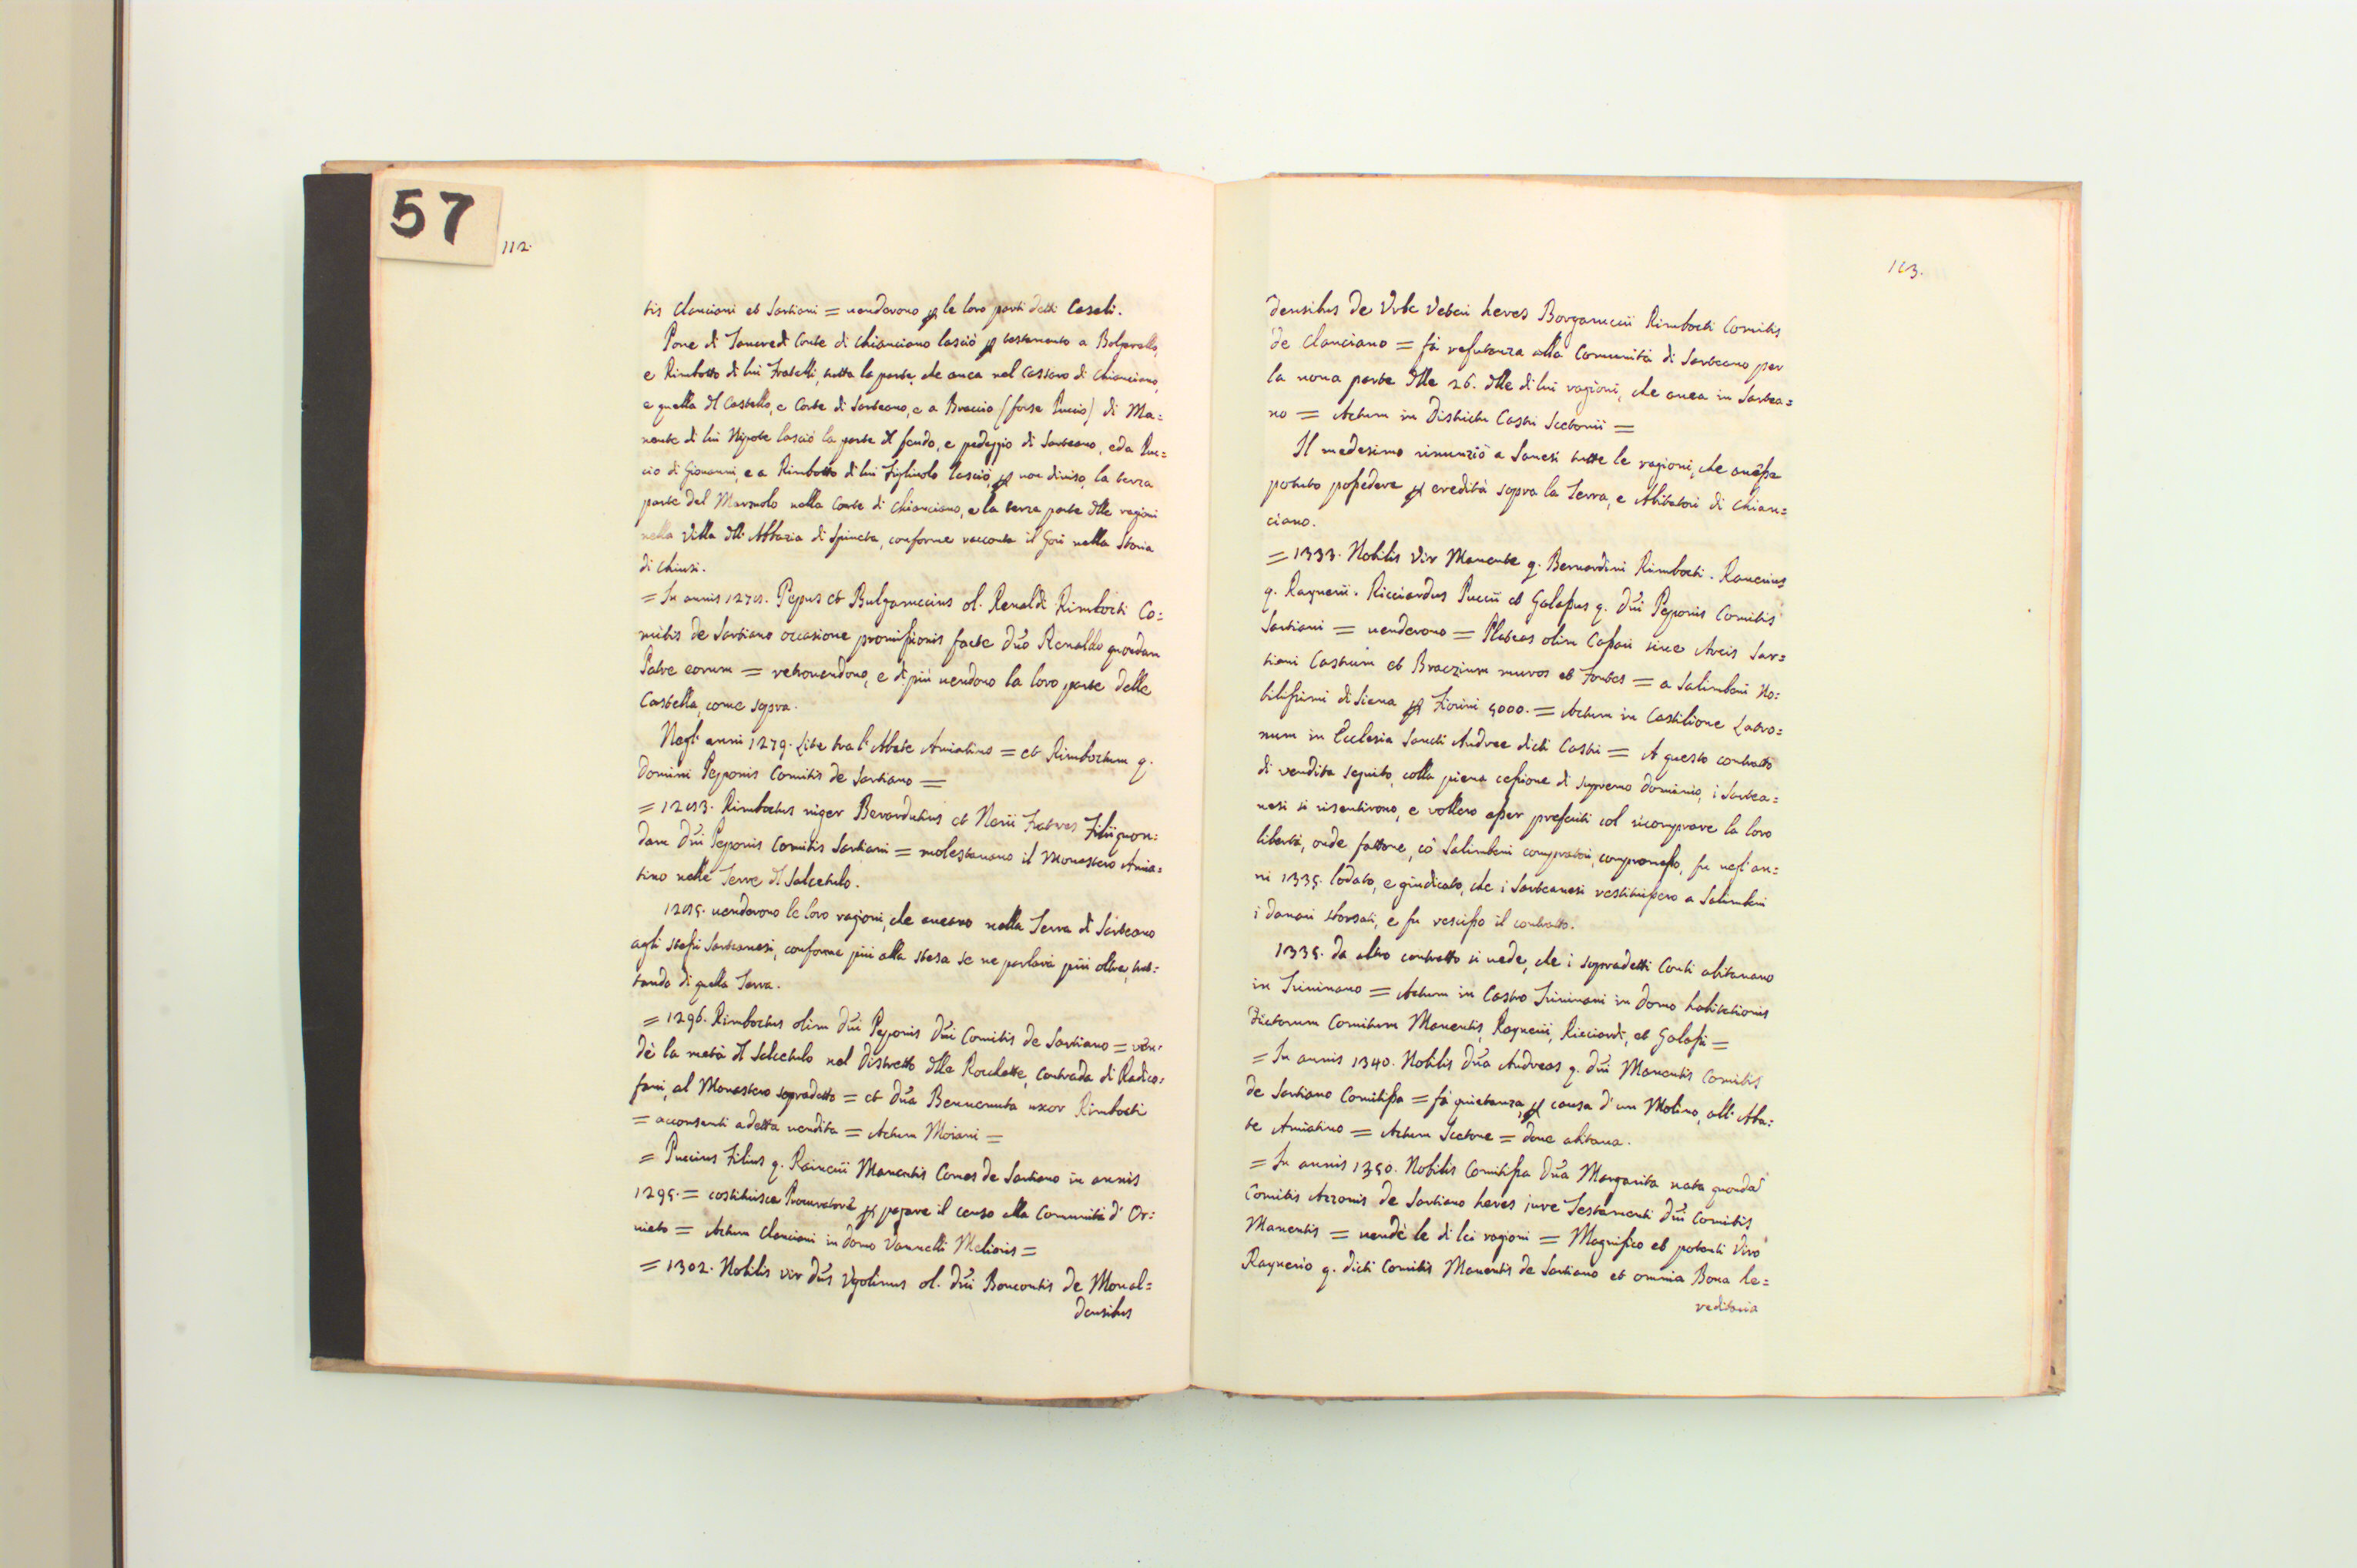 57
112.
tis Clanciani et Sartiani = venderono p le loro parti detti Casali.
Pone di Tancredi Conte di Chianciano lasciò p testamento a Bolgarello,
e Rimbotto di lui Fratelli, tutta la parte, che avea nel Cassero di Chianciano,
e quella dl Castello, e Corte di Sarteano, e a Braccio (forse Puccio) di Ma=
nente di lui Nipote lasciò la parte dl feudo, e pedaggio di Sarteano, ed a Puc=
cio di Giovanni, e a Rimbotto di lui Figliuolo lasciò, p non diviso, la terza
parte del nella Corte di Chianciano, e la terza parte dlle ragioni
nella Villa dll' Abbazia di Spineta, conforme racconta il Gori nella Storia
di Chiusi.
= In annis Pepus et Bulgaruccius ol. Renaldi Rimbocti Co=
mitis de Sartiano occasione promissionis facte Dño Renaldo quondam
Patre eorum = retrovendono, e di più vendono la loro parte delle
Castella, come sopra.
Negl' anni 1279. Lite tra l' Abate Amiatino = et Rimboctum q.
Domini Peponis Comitis de Sartiano =
= Rimboctus niger Berardutius et Nerii Fratres Filii quon=
dam Dñi Peponis Comitis Sartiani = molestavano il Monastero Amia=
tino nelle Terre dl Salcetulo.
venderono le loro ragioni, che aveano nella Terra di Sarteano
agli stessi Sarteanesi, conforme più alla stesa se ne parlarà più oltre, trat=
tando di quella Terra.
= 1296. Rimboctus olim Dñi Peponis Dñi Comitis de Sartiano = ven=
dè la metà dl Salcetulo nel Distretto dlle Rocchette, Contrada di Radico=
fani, al Monastero sopradetto = et Dña Bennenuta uxor Rimbocti
= acconsentì a detta vendita = Actum Moiani =
= Puccius Filius q. Rainerii Manentis Comes de Sartiano in annis
1295. = costituisce Procuratore p pagare il censo alla Comunità d' Or=
vieto = Actum Clanciani in domo Vannelli Melioris =
= 1302. Nobilis vir Dñs Ugolinus ol. Dñi Boncontis de Monal=
densibus
113.
densibus de Urbe Veteri heres Borgaruccii Rimbocti Comitis
de Clanciano = fà refutanza alla Comunità di Sarteano per
la nona parte dlle 26. dlle di lui ragioni, che avea in Sartea=
no = Actum in Districtu Castri Scetonii =
Il medesimo rinunziò a Sanesi tutte le ragioni, che avesse
potuto possedere p eredità sopra la Terra, e Abitatori di Chian=
ciano.
= 1333. Nobilis Vir Manente q. Bernardini Rimbocti. Ranerius
q. Raynerii. Ricciardus Puccii et Galassus q. Dñi Peponis Comitis
Sartiani = venderono = Plateas olim Cassari sive Arcis Sar=
tiani Castrum et Braczium muros et Fontes = a Salimbeni No=
bilissimi di Siena p Fiorini 5000. = Actum in Castilione Latro=
num in Ecclesia Sancti Andree dicti Castri = A questo contratto
di vendita seguito, colla piena cessione di supremo dominio, i Sartea=
nesi si risentirono, e vollero esser preferiti col ricomprare la loro
libertà, onde fattone, cò Salimbeni compratori, compromesso, fu negl' an=
ni 1335. lodato, e giudicato, che i Sarteanesi restituissero a Salimbeni
i danari sborsati, e fu rescisso il contratto.
1335. da altro contratto si vede, che i sopradetti Conti abitavano
in Trivinano = Actum in Castro Trivinani in domo habitationis
dictorum Comitum Manentis, Raynerii, Ricciardi, et Galassi =
= In annis 1340. Nobilis Dña Andreas q. Dñi Manentis Comitis
de Sartiano Comitissa = fà quietanza, p causa d' un Molino, all' Aba=
te Amiatino = Actum Scetone = dove abitava.
= In annis 1350. Nobilis Comitissa Dña Margarita nata quondã
Comitis Azzonis de Sartiano heres jure Testamenti Dñi Comitis
Manentis = vendè le di lei ragioni = Magnifico et potenti Viro
Raynerio q. dicti Comitis Manentis de Sartiano et omnia Bona he=
reditaria